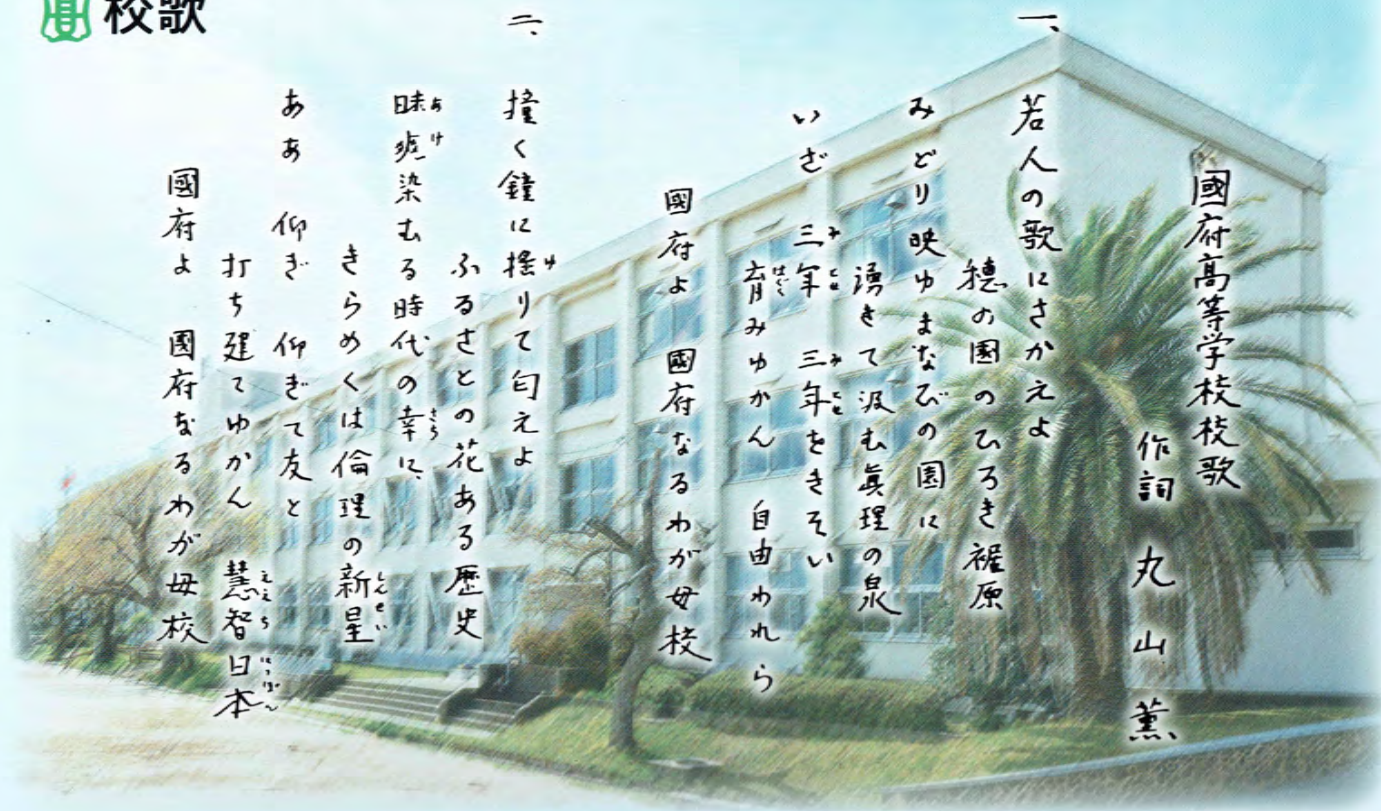 校歌
國府高等学校校歌
作詞 丸山 薫
一、
若人の歌にさかえよ
穂の國のひろき裾原
みどり映ゆまなびの園に
湧きて汲む眞理の泉
いざ 三年 三年をきそい
育みゆかん 自由われら
國府よ 國府なるわが母校
二、
撞く鐘に搖りて匂えよ
ふるさとの花ある歴史
昧爽染むる時代の幸に
きらめくは倫理の新星
ああ 仰ぎ 仰ぎて友と
打ち建てゆかん 慧智日本
國府よ 國府なるわが母校